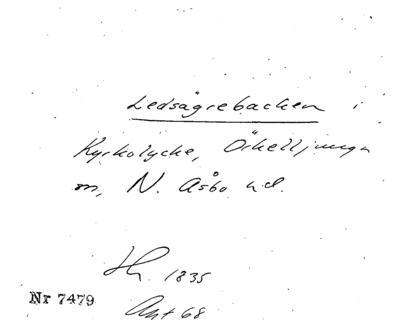 Ledsagrebacken i
Kyrkolycke, Örkelljunga
m, N. Åsbo hd.
Hh. 1835
Nr 7479
Ant 68